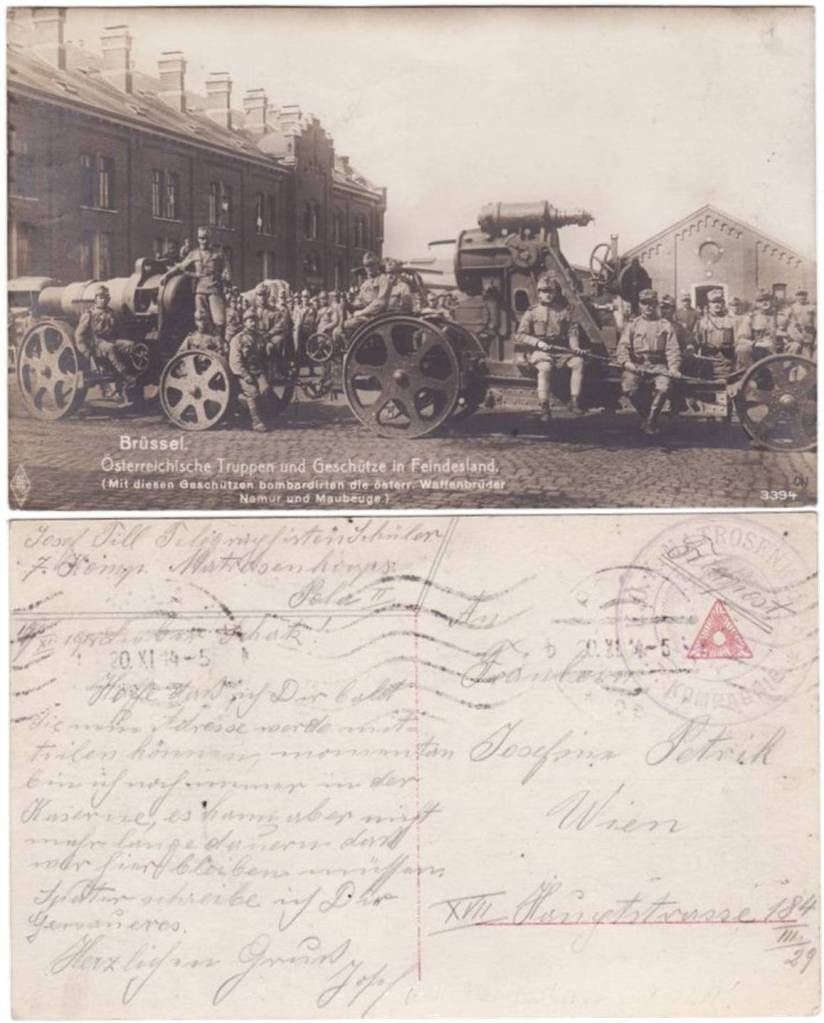 Brüssel.
Österreichische Truppen und Geschütze in Feindesland.
(Mit diesen Geschützen bombardirten die österr. Waffenbrüder
Namur und Maubeuge.)
3394
Josef Till Telegrafisten Schüler
7. Komp. Matrosenkorps
Pola II
MATROSENK
KOMPAGNIE
Feldpost
20.XI 14-5
20.XI 14-5
Hoffe daß ich Dir bald
die neue Adresse werde mit-
teilen können, momentan
bin ich noch immer in der
Kaserne, es kann aber nicht
mehr lange dauern daß
wir hier bleiben müssen
Später schreibe ich Dir
Genaueres.
Herzlichen Gruß
Josef
An
Fräulein
Josefine Petrik
Wien
XVII Hauptstrasse 184
III.
29